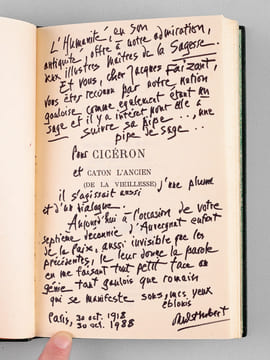 L'Humanité, en son
antiquité, offre à notre admiration,
illustres maîtres de la Sagesse.
Et vous, cher Jacques Faizant,
vous êtes reconnu par notre nation
gauloise comme également étant un
sage et il y a intérêt pour elle à
suivre sa pipe ..., une
pipe de sage ...
Pour CICÉRON
et CATON L'ANCIEN
(DE LA VIEILLESSE) j'une plume
il s'agissait aussi
et d'un dialogue.
Aujourd'hui à l'occasion de votre
septième décennie, l'Auvergnat enfant
de la Paix, aussi invisible que les
précédentes, je leur donne la parole
en me faisant tout petit face au
génie tant gaulois que romain
qui se manifeste sous mes yeux
éblouis
Paris, 30 oct. 1918
30 oct. 1988